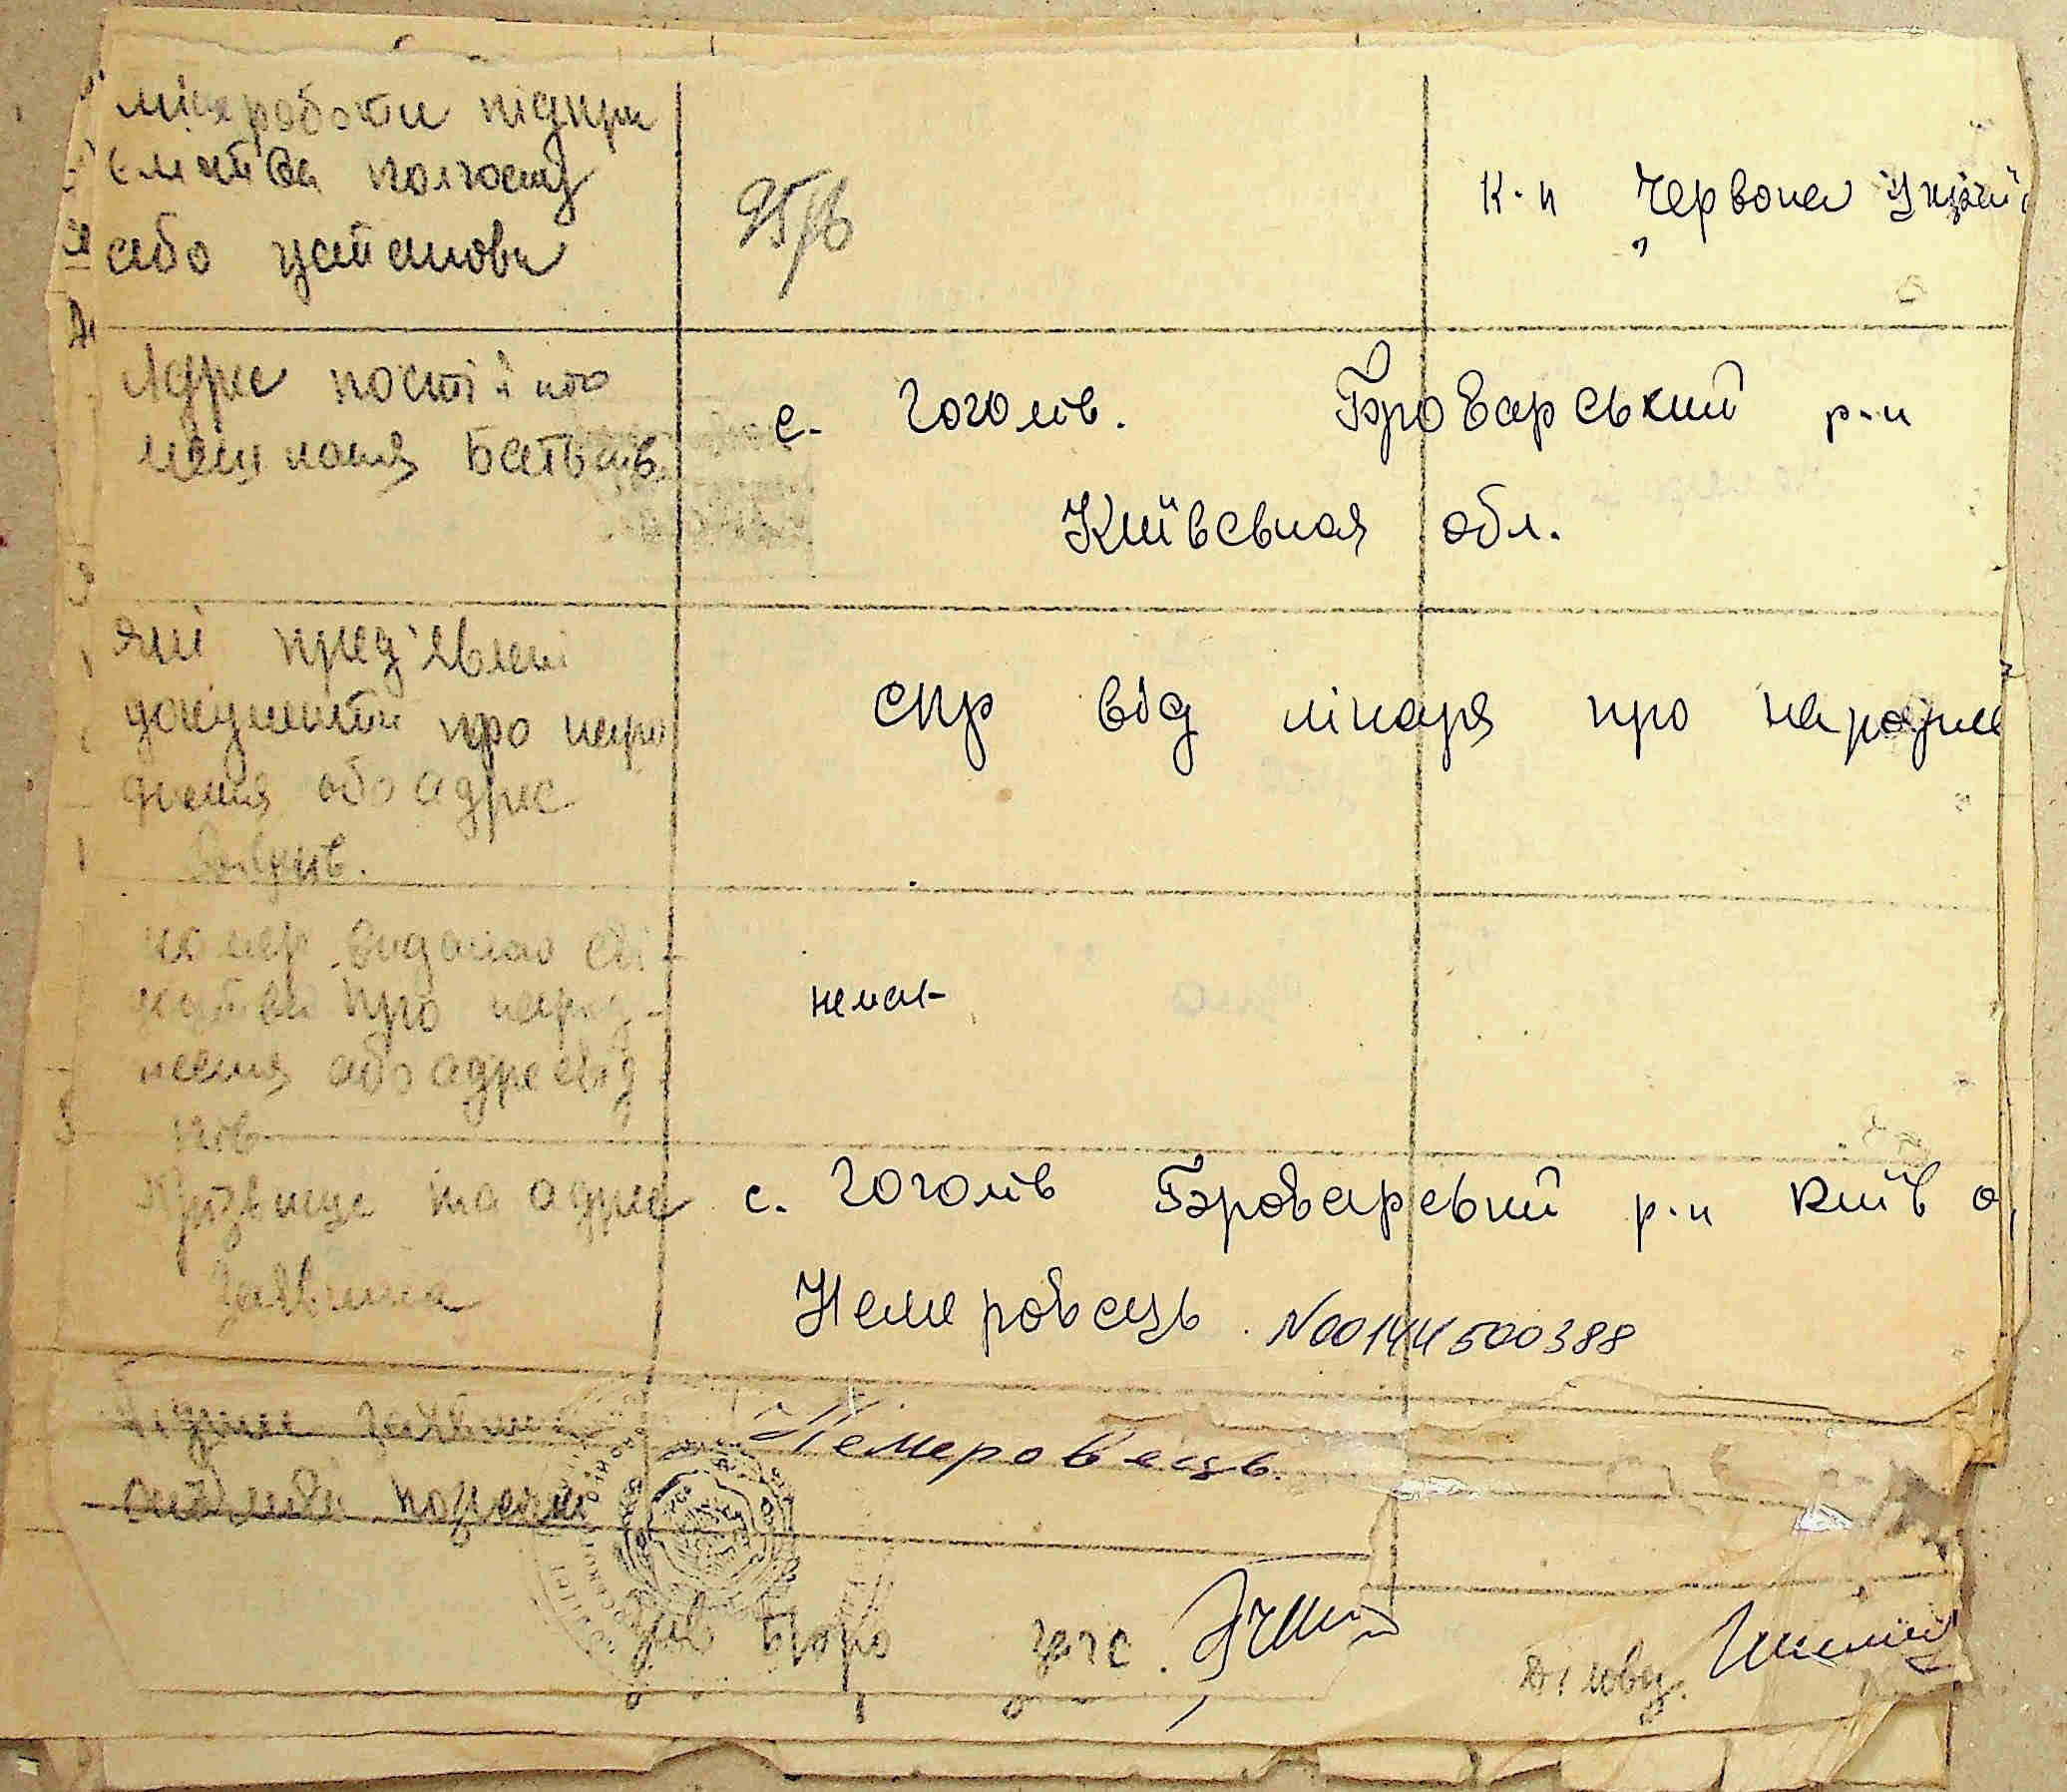 місце роботи підпри
ємства колгоспу
або установи
к-п "Червона Україн
Адрес постійного
мешкання батьків
с. Гоголів. Броварський р-н
Київськая обл.
які пред'явлені
документи про наро
дження або адрес
спр від лікаря про народже
номер виданого сві-
доцтва про народ-
ження або адре свід
ків
немає
Прізвище та адрес
заявника
с. Гоголів Броварський р-н Київ о
Немеровець N00144500388
Підпис заявника
Немеровець.
Зав Бюро загс.
Діловод.